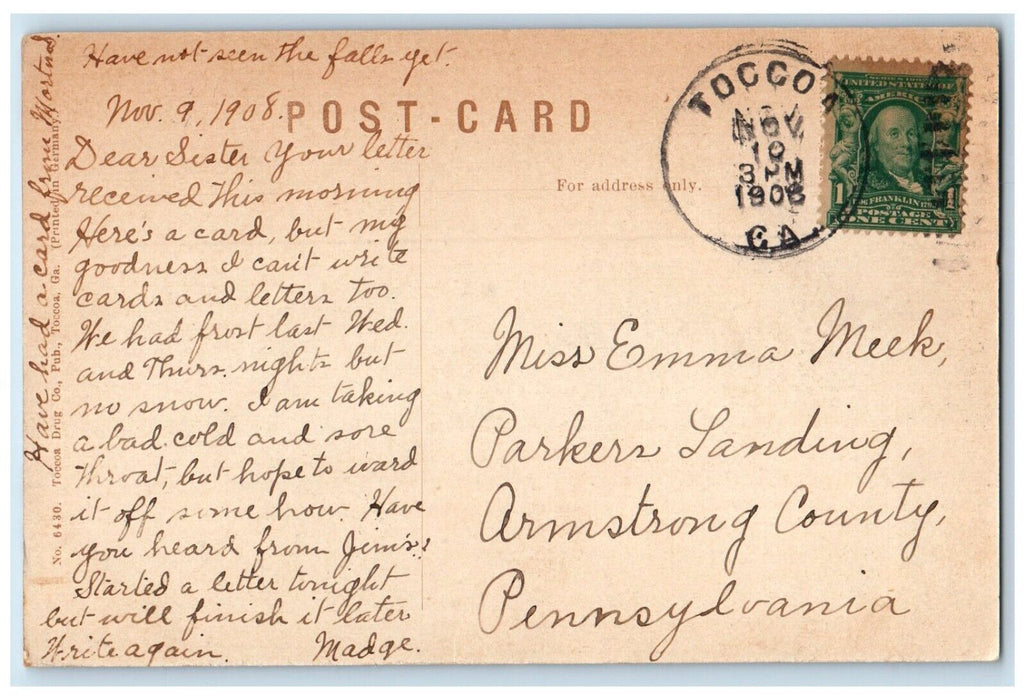 Have not seen the falls yet.
Nov. 9, 1908.
POST-CARD
Dear Sister Your letter
received this morning
Here's a card, but my
goodness I can't write
cards and letters too.
We had frost last Wed.
and Thurs. nights but
no snow. I am taking
a bad cold and sore
throat, but hope to ward
it off some how. Have
you heard from Jim's?
Started a letter tonight
but will finish it later
Write again. Madge.
Have had a card from
No. 6430. Toccoa Drug Co., Pub., Toccoa, Ga. (Printed in Germany.)
For address only.
TOCCOA
NOV
10
3 PM
1908
GA.
UNITED STATES OF
AMERICA
1 FRANKLIN 1
POSTAGE
ONE CENT
Miss Emma Meek,
Parkers Landing,
Armstrong County,
Pennsylvania